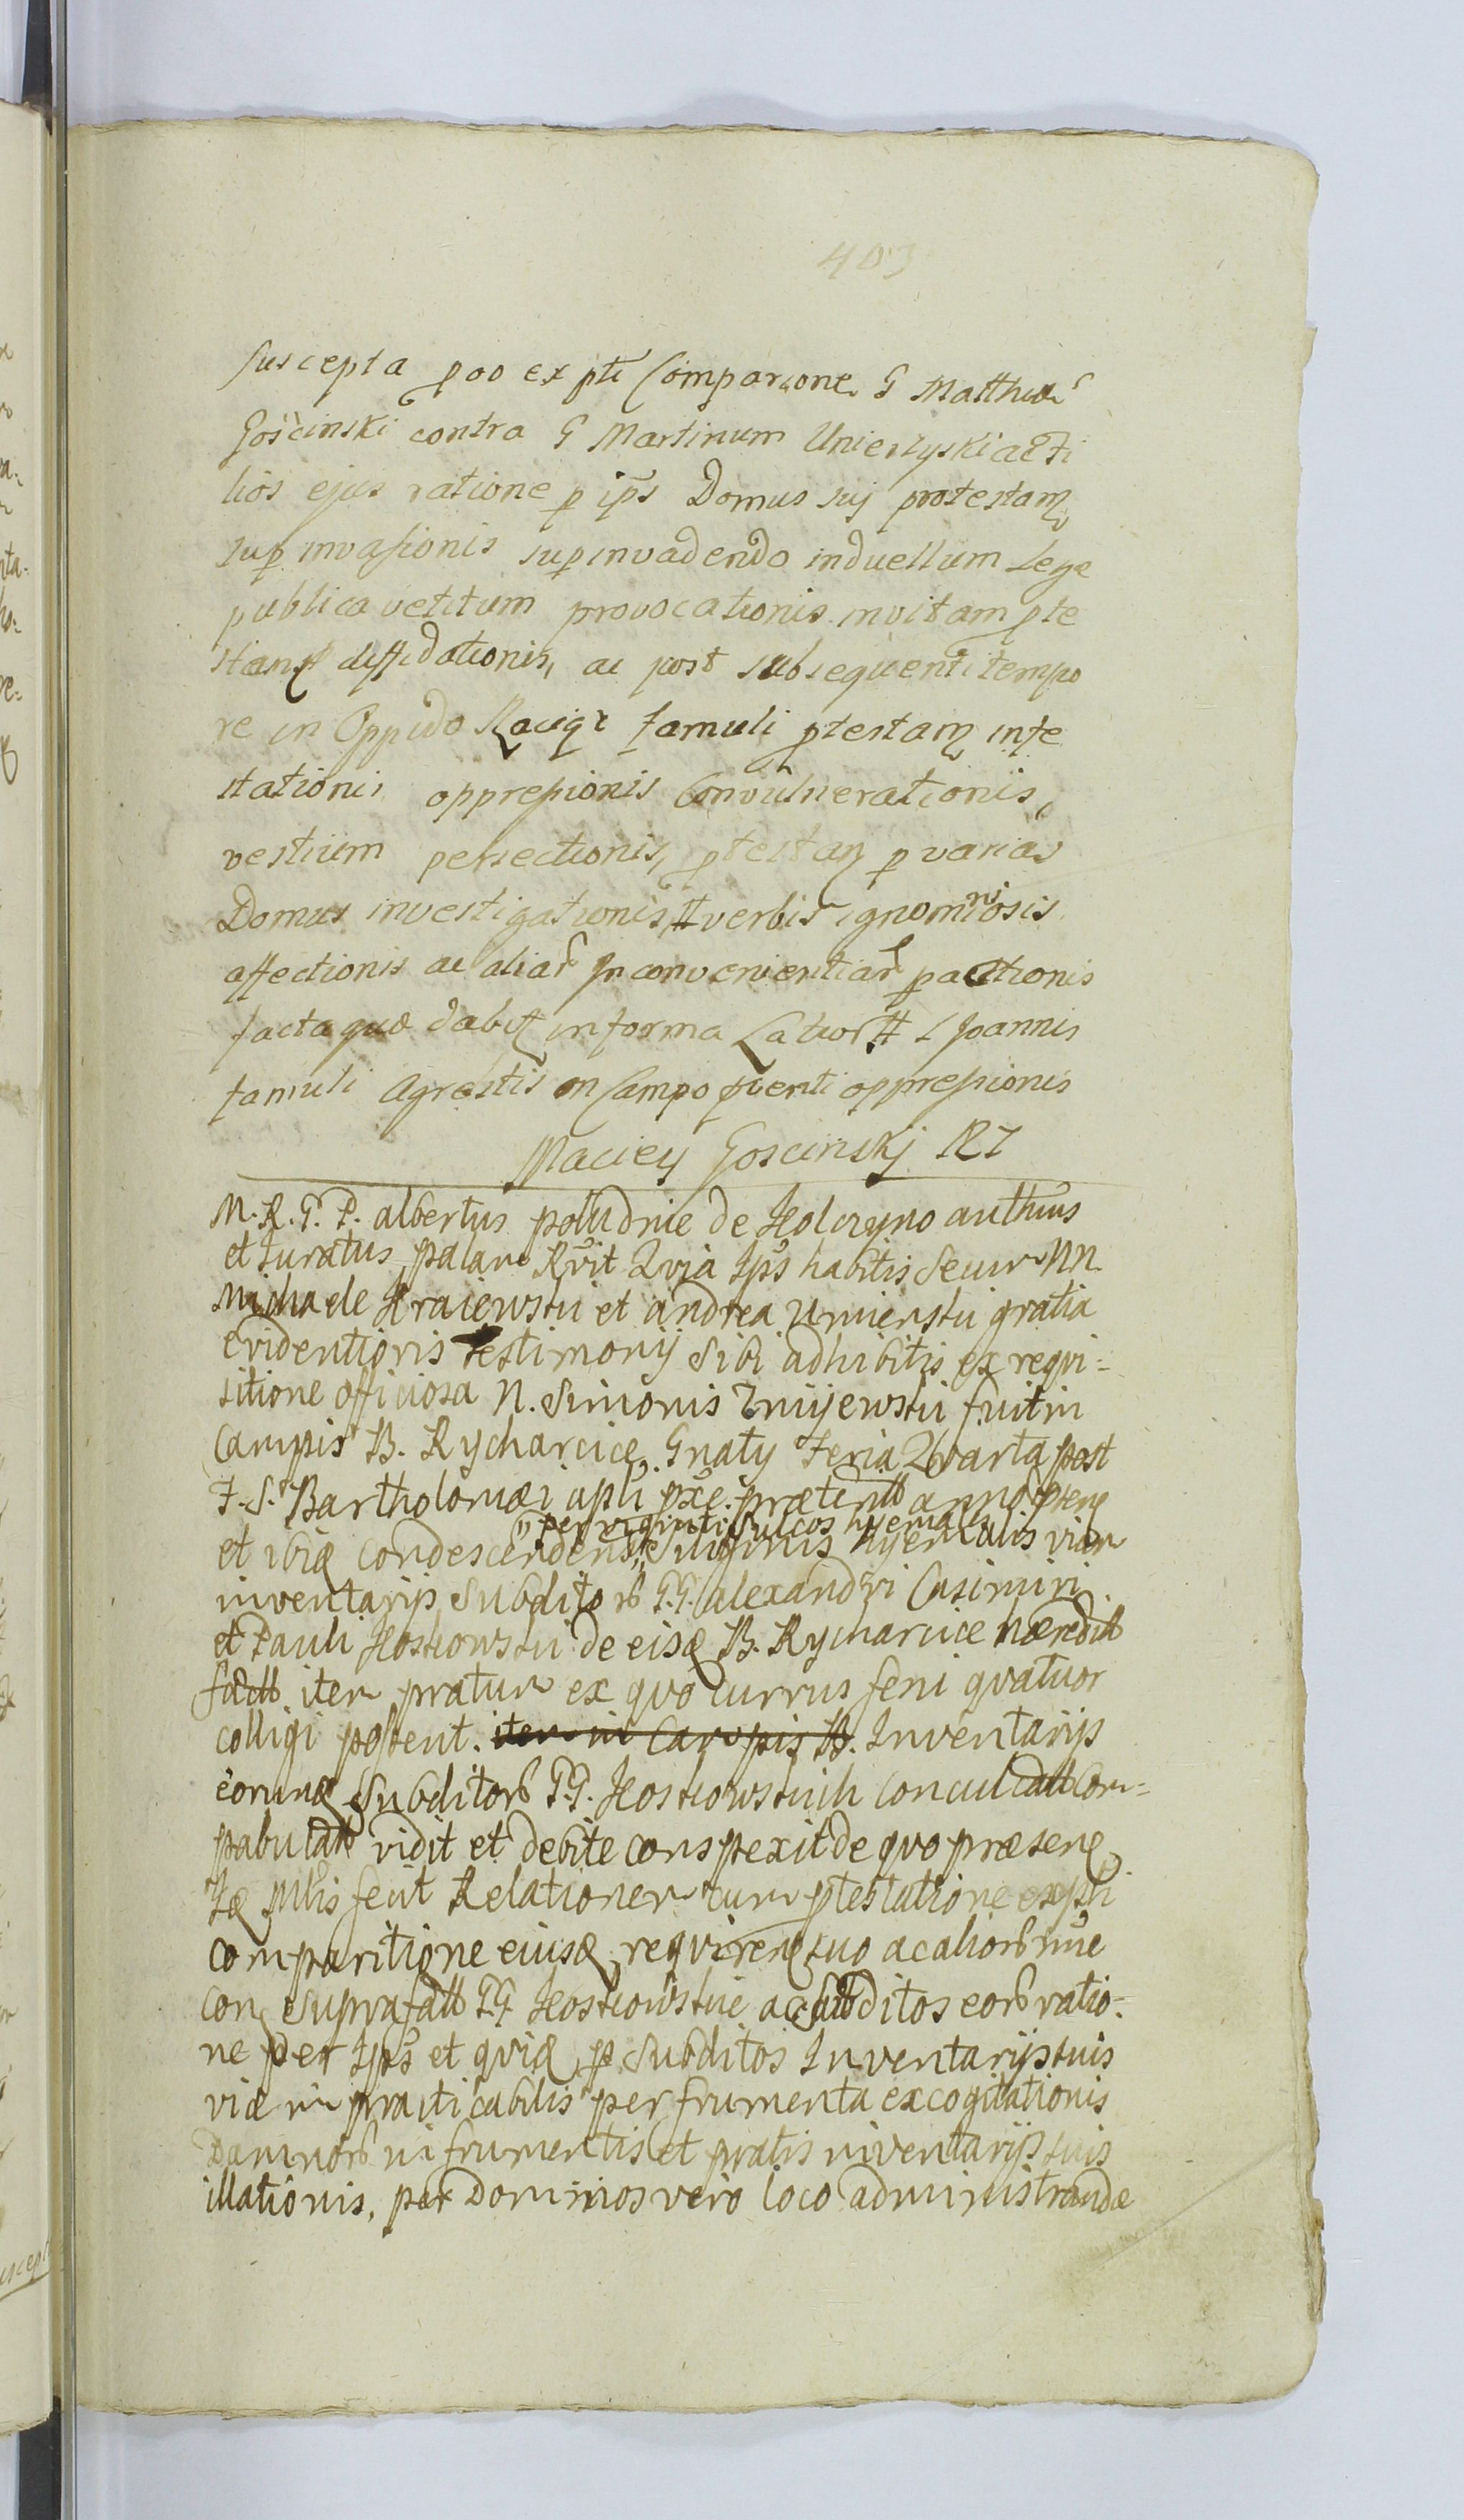 403
suscepta poo ex pti Comparcone G Matthiæ
Gościnski contra G Martinum Unierzyski ac Fi
lios ejus ratione p ips Domus suj protestam
sup invasionis sup invadendo in duellum Lege
publica vetitum provocationis invitam pte
stanq diffidationis, ac post subsequenti tempo
re in Oppido Raciąz famuli ptestam infe
stationis oppressionis Convulnerationis,
vestium persectionis, ptestan p varias
Domus investigationis, # verbis ignominiosis
affectionis ac aliar Inconvenientiar pactionis
factaque dabit in forma Latior # L Joannis
famuli Agrestis in Campo frenti oppressionis
Maciey Goscinskj RI
M. R. G. P. albertus poludnie de Holczyno authius
et Juratus palam Rvit Qvia Ips habitis Secum NN.
Michaele Kraiewski et andrea Umienski gratia
Evidentioris testimonij Sibi adhibitis ex reqvi-
sitione officiosa N. Simonis Zmijewski fuit in
Campis B. Rycharcice Gnaty Feria Qvarta post
F. S. Bartholomæi apli pxe. præterit anno pten
" per viginti sulcos hyemales
et ibiq condescendens " Siliginis hyemalis viam
inventarijs Subditor G.G. Alexandri Casimiri
et Pauli Hostowski de eisq B. Rycharcice hæredit
factt item pratum ex quo currus feni qvatuor
colligi possent. item in Campis B. Inventarijs
eorumq Subditor G.G. Hostowskich conculcatt Com-
pabulatt vidit et debite conspexit de quo præsens
Iq pnlis fecit Relationem cum ptestatione ex pti
comparitione eiusq reqvirens suo ac alior nne
con suprafatt G.G. Hostowskie ac subditos eor ratio-
ne per Ips et qviq p subditos Inventarijs suis
viæ impracticabilis per frumenta excogitationis
Damnor in frumentis et pratis inventarijs suis
illationis, per Dominos vero loco administrandæ